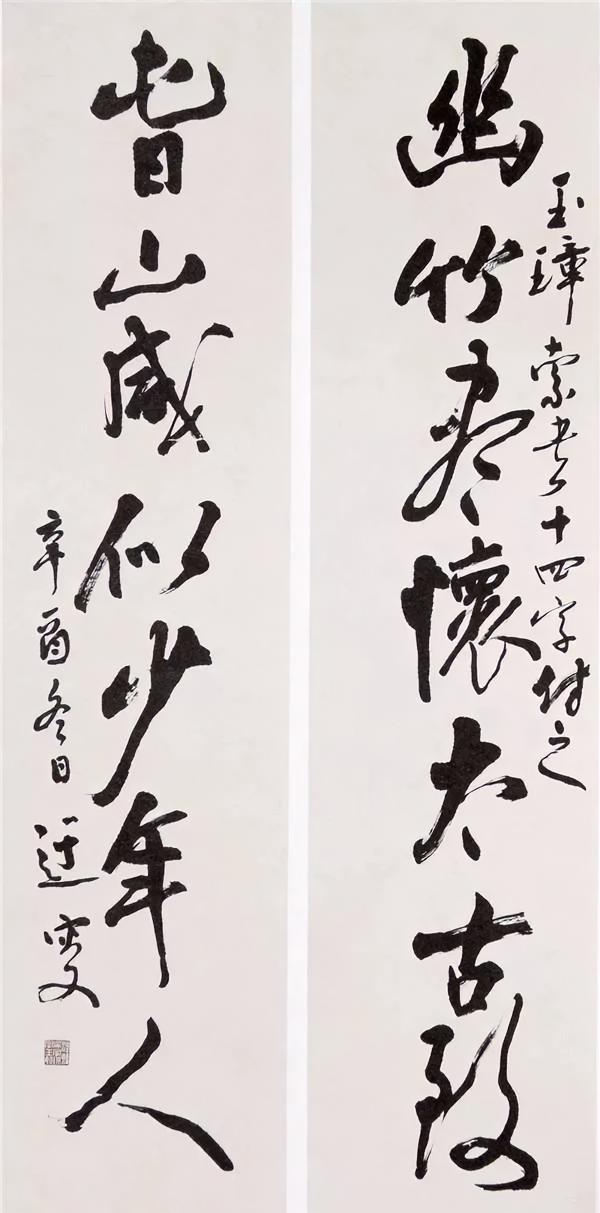 玉璋索書十四字付之
幽竹盡懷太古致
旾山咸似少年人
辛酉冬日叟